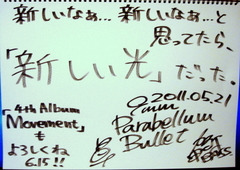 新しいなぁ… 新しいなぁ…と
思ってたら、
「新しい光」だった。
「4th Album
Movement」
も
よろしくね
6.15!!
2011.05.21
9mm
Parabellum
Bullet